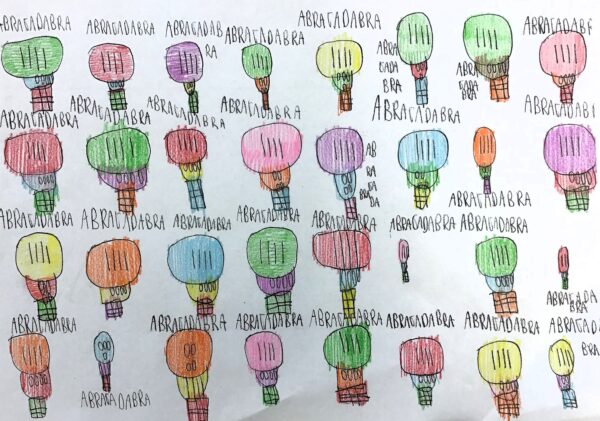 ABRACADABRA
ABRACADABRA
ABRACADAB
RA
ABRACADABRA
ABRACADABRA
ABRA
CADA
BRA
ABRA
CADA
BRA
ABRACADABR
ABRACADABRA
ABRACADABRA
ABRACADABRA
ABRACADABRA
AB
RA
CA
DA
BRA
ABRACADABRA
ABRACADABRA
ABRACADAB
ABRACADABRA
ABRACADABRA
ABRACADABRA
ABRACADABRA
ABRACADABRA
ABRACADABRA
ABRACADABRA
ABRACADA
BRA
ABRACADABRA
ABRACADABRA
ABRACADABRA
ABRACADABRA
ABRACADABRA
ABRACADABRA
ABRACADABRA
ABRACADA
BRA